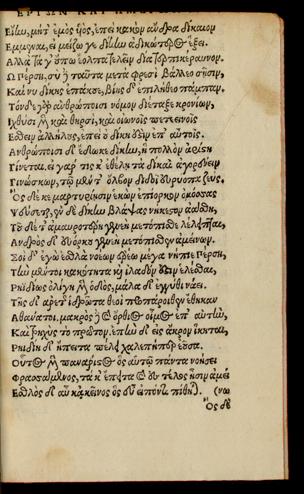 ΕΡΓΩΝ ΚΑΙ ΗΜΕ
Εἴλω, μήτ' ἐμὸς ἥος, ἐπεὶ κακὸν ἄνδρα δίκαιον
Ἔμμεναι, εἰ μείζω γε δίκλω ἀδικώτερος ἕξει.
Ἀλλὰ τά γ' οὔπω ἔολπα τελεῖν δία τερπικέραυνον.
Ὦ Πέρση, σὺ ἢ ταῦτα μετὰ φρεσὶ βάλλεο σῇσιν,
Καί νυ δίκης ἐπάκουε, βίης δ' ἐπιλήθεο πάμπαν.
Τόνδε γὰρ ἀνθρώποισι νόμον διέταξε κρονίων,
Ἰχθύσι μὲν καὶ θηρσὶ, καὶ οἰωνοῖς πετεινοῖς
Ἔσθειν ἀλλήλους, ἐπεὶ οὐ δίκη ἐστὶν ἐπ' αὐτοῖς.
Ἀνθρώποισι δ' ἔδωκε δίκην, ἣ πολλὸν ἀρίστη
Γίνεται. εἰ γάρ τις κ' ἐθέλῃ τὰ δίκαι' ἀγορεύειν
Γινώσκων, τῷ μέν τ' ὄλβον διδοῖ εὐρύοπα ζεύς.
Ὃς δέ κε μαρτυρίῃσιν ἑκὼν ἐπίορκον ὀμόσσας
Ψεύσεται, ἐν δὲ δίκην βλάψας νήκεστον ἀάσθη,
Τοῦ δέ τ' ἀμαυροτέρη γενεὴ μετόπισθε λέλειπται,
Ἀνδρὸς δ' εὐόρκου γενεὴ μετόπισθεν ἀμείνων.
Σοὶ δ' ἐγὼ ἐσθλὰ νοέων ἐρέω μέγα νήπιε Πέρση,
Τὴν μέντοι κακότητα καὶ ἰλαδὸν ἔστιν ἑλέσθαι,
Ῥηϊδίως ὀλίγη μὲν ὁδὸς, μάλα δ' ἐγγύθι ναίει.
Τῆς δ' ἀρετῆς ἱδρῶτα θεοὶ προπάροιθεν ἔθηκαν
Ἀθάνατοι. μακρὸς δὲ καὶ ὄρθιος οἶμος ἐπ' αὐτὴν,
Καὶ τρηχὺς τὸ πρῶτον. ἐπὴν δ' εἰς ἄκρον ἵκηται,
Ῥηϊδίη δ' ἤπειτα πέλει χαλεπή περ ἐοῦσα.
Οὗτος μὲν πανάριστος ὃς αὐτῷ πάντα νοήσει
Φρασσάμενος, τά κ' ἔπειτα καὶ ἐς τέλος ᾖσιν ἀμεί
Ἐσθλὸς δ' αὖ κἀκεῖνος ὃς εὖ εἰπόντι πίθηται. (νω
Ὃς δὲ